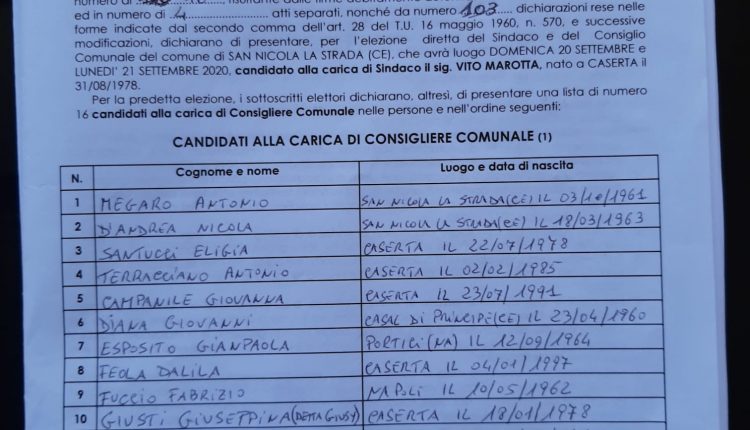 ed in numero di 4 atti separati, nonché da numero 103 dichiarazioni rese nelle
forme indicate dal secondo comma dell'art. 28 del T.U. 16 maggio 1960, n. 570, e successive
modificazioni, dichiarano di presentare, per l'elezione diretta del Sindaco e del Consiglio
Comunale del comune di SAN NICOLA LA STRADA (CE), che avrà luogo DOMENICA 20 SETTEMBRE e
LUNEDI' 21 SETTEMBRE 2020, candidato alla carica di Sindaco il sig. VITO MAROTTA, nato a CASERTA il
31/08/1978.
Per la predetta elezione, i sottoscritti elettori dichiarano, altresì, di presentare una lista di numero
16 candidati alla carica di Consigliere Comunale nelle persone e nell'ordine seguenti:
CANDIDATI ALLA CARICA DI CONSIGLIERE COMUNALE (1)
N. Cognome e nome Luogo e data di nascita
1 MEGARO ANTONIO SAN NICOLA LA STRADA(CE) IL 03/10/1961
2 D'ANDREA NICOLA SAN NICOLA LA STRADA(CE) IL 18/03/1963
3 SANTUCCI ELIGIA CASERTA IL 22/07/1978
4 TERRACCIANO ANTONIO CASERTA IL 02/02/1985
5 CAMPANILE GIOVANNA CASERTA IL 23/07/1991
6 DIANA GIOVANNI CASAL DI PRINCIPE(CE) IL 23/04/1960
7 ESPOSITO GIANPAOLA PORTICI(NA) IL 12/09/1964
8 FEOLA DALILA CASERTA IL 04/01/1997
9 FUCCIO FABRIZIO NAPOLI IL 10/05/1962
10 GIUSTI GIUSEPPINA(DETTA GIUSY) CASERTA IL 18/01/1978